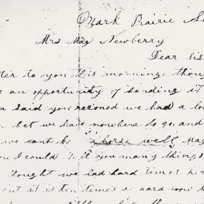 Ozark Prairie
Mrs May Newberry
Dear Sis
ter to you this morning thou
an opportunity of sending it
Said you recioned we had a lo
but we have nowhere to go and
we cant be where well May
I could tell you many things
thought we had hard times
it is ten times as hard now